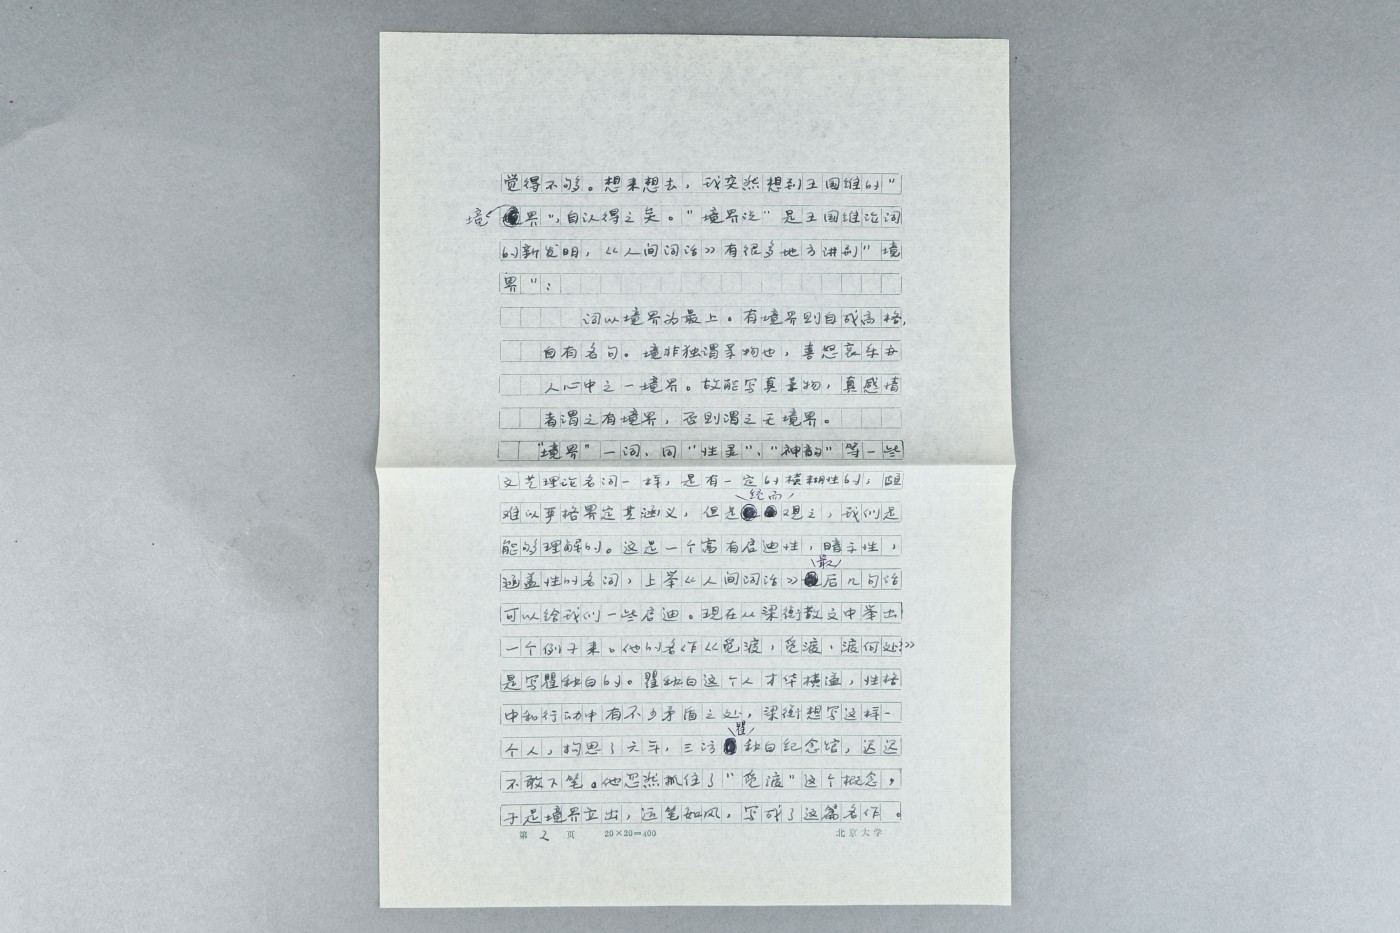 觉得不够。想来想去，我突然想到王国维的"
境界"，自认得之矣。"境界说"是王国维论词
的新发明，《人间词话》有很多地方讲到"境
界"：
词以境界为最上。有境界则自成高格，
自有名句。境非独谓景物也，喜怒哀乐亦
人心中之一境界。故能写真景物，真感情
者谓之有境界，否则谓之无境界。
"境界"一词，同"性灵"、"神韵"等一些
文艺理论名词一样，是有一定的模糊性的；颇
难以严格界定其涵义，但是统而观之，我们是
能够理解的。这是一个富有启迪性，暗示性，
涵盖性的名词，上举《人间词话》最后几句话
可以给我们一些启迪。现在从梁衡散文中举出
一个例子来。他的名作《觅渡，觅渡，渡何处？》
是写瞿秋白的。瞿秋白这个人才华横溢，性格
中和行动中有不少矛盾之处，梁衡想写这样一
个人，构思了六年，三访瞿秋白纪念馆，迟迟
不敢下笔。他忽然抓住了"觅渡"这个概念，
于是境界立出，运笔如风，写成了这篇名作。
第 2 页 20×20=400 北京大学